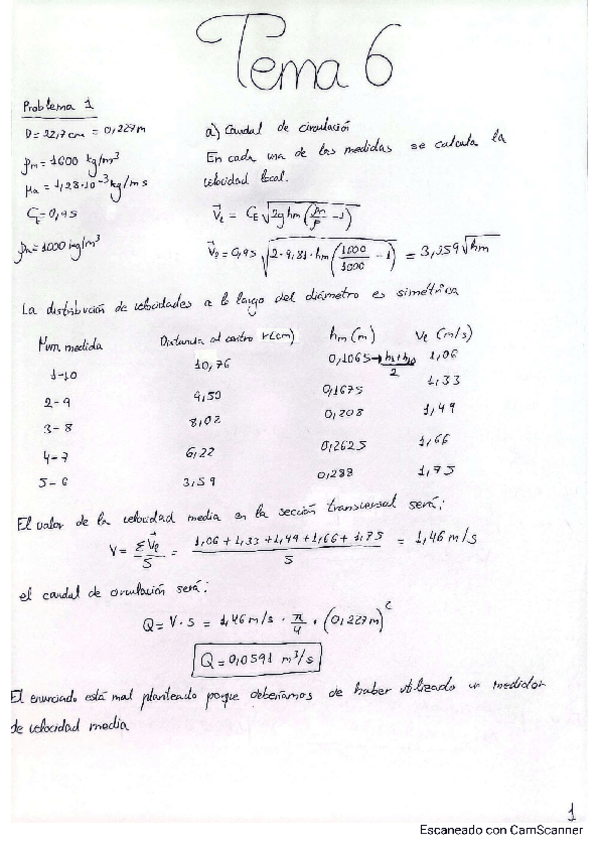 Tema 6
Problema 1
D = 22,7 cm = 0,227 m
ρm = 1600 kg/m³
μa = 1,28·10⁻³ kg/m s
CE = 0,95
ρa = 1000 kg/m³
a) Caudal de circulación
En cada una de las medidas se calcula la
velocidad local.
Vl = CE √(2g hm (ρm/ρ - 1))
Vl = 0,95 √(2·9,81·hm (1600/1000 - 1)) = 3,259 √hm
La distribución de velocidades a lo largo del diámetro es simétrica
Num medida Distancia al centro r(cm) hm (m) Vl (m/s)
1-10 10,76 0,1065 → h1+h10/2 1,06
2-9 9,50 0,1675 1,33
3-8 8,02 0,208 1,49
4-7 6,22 0,2625 1,66
5-6 3,59 0,288 1,75
El valor de la velocidad media en la sección transversal será:
V = ΣVl/5 = (1,06 + 1,33 + 1,49 + 1,66 + 1,75)/5 = 1,46 m/s
el caudal de circulación será:
Q = V·S = 1,46 m/s · π/4 · (0,227m)²
Q = 0,0591 m³/s
El enunciado está mal planteado porque deberíamos de haber utilizado un medidor
de velocidad media
1
Escaneado con CamScanner